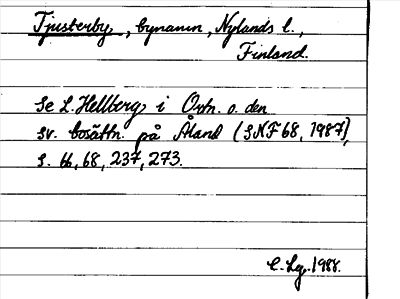 Tjusterby, bynamn, Nylands l.,
Finland.
Se L. Hellberg i Ortn. o. den
sv. bosättn. på Åland (SNF 68, 1987),
s. 66, 68, 237, 273.
C. Lg. 1988.